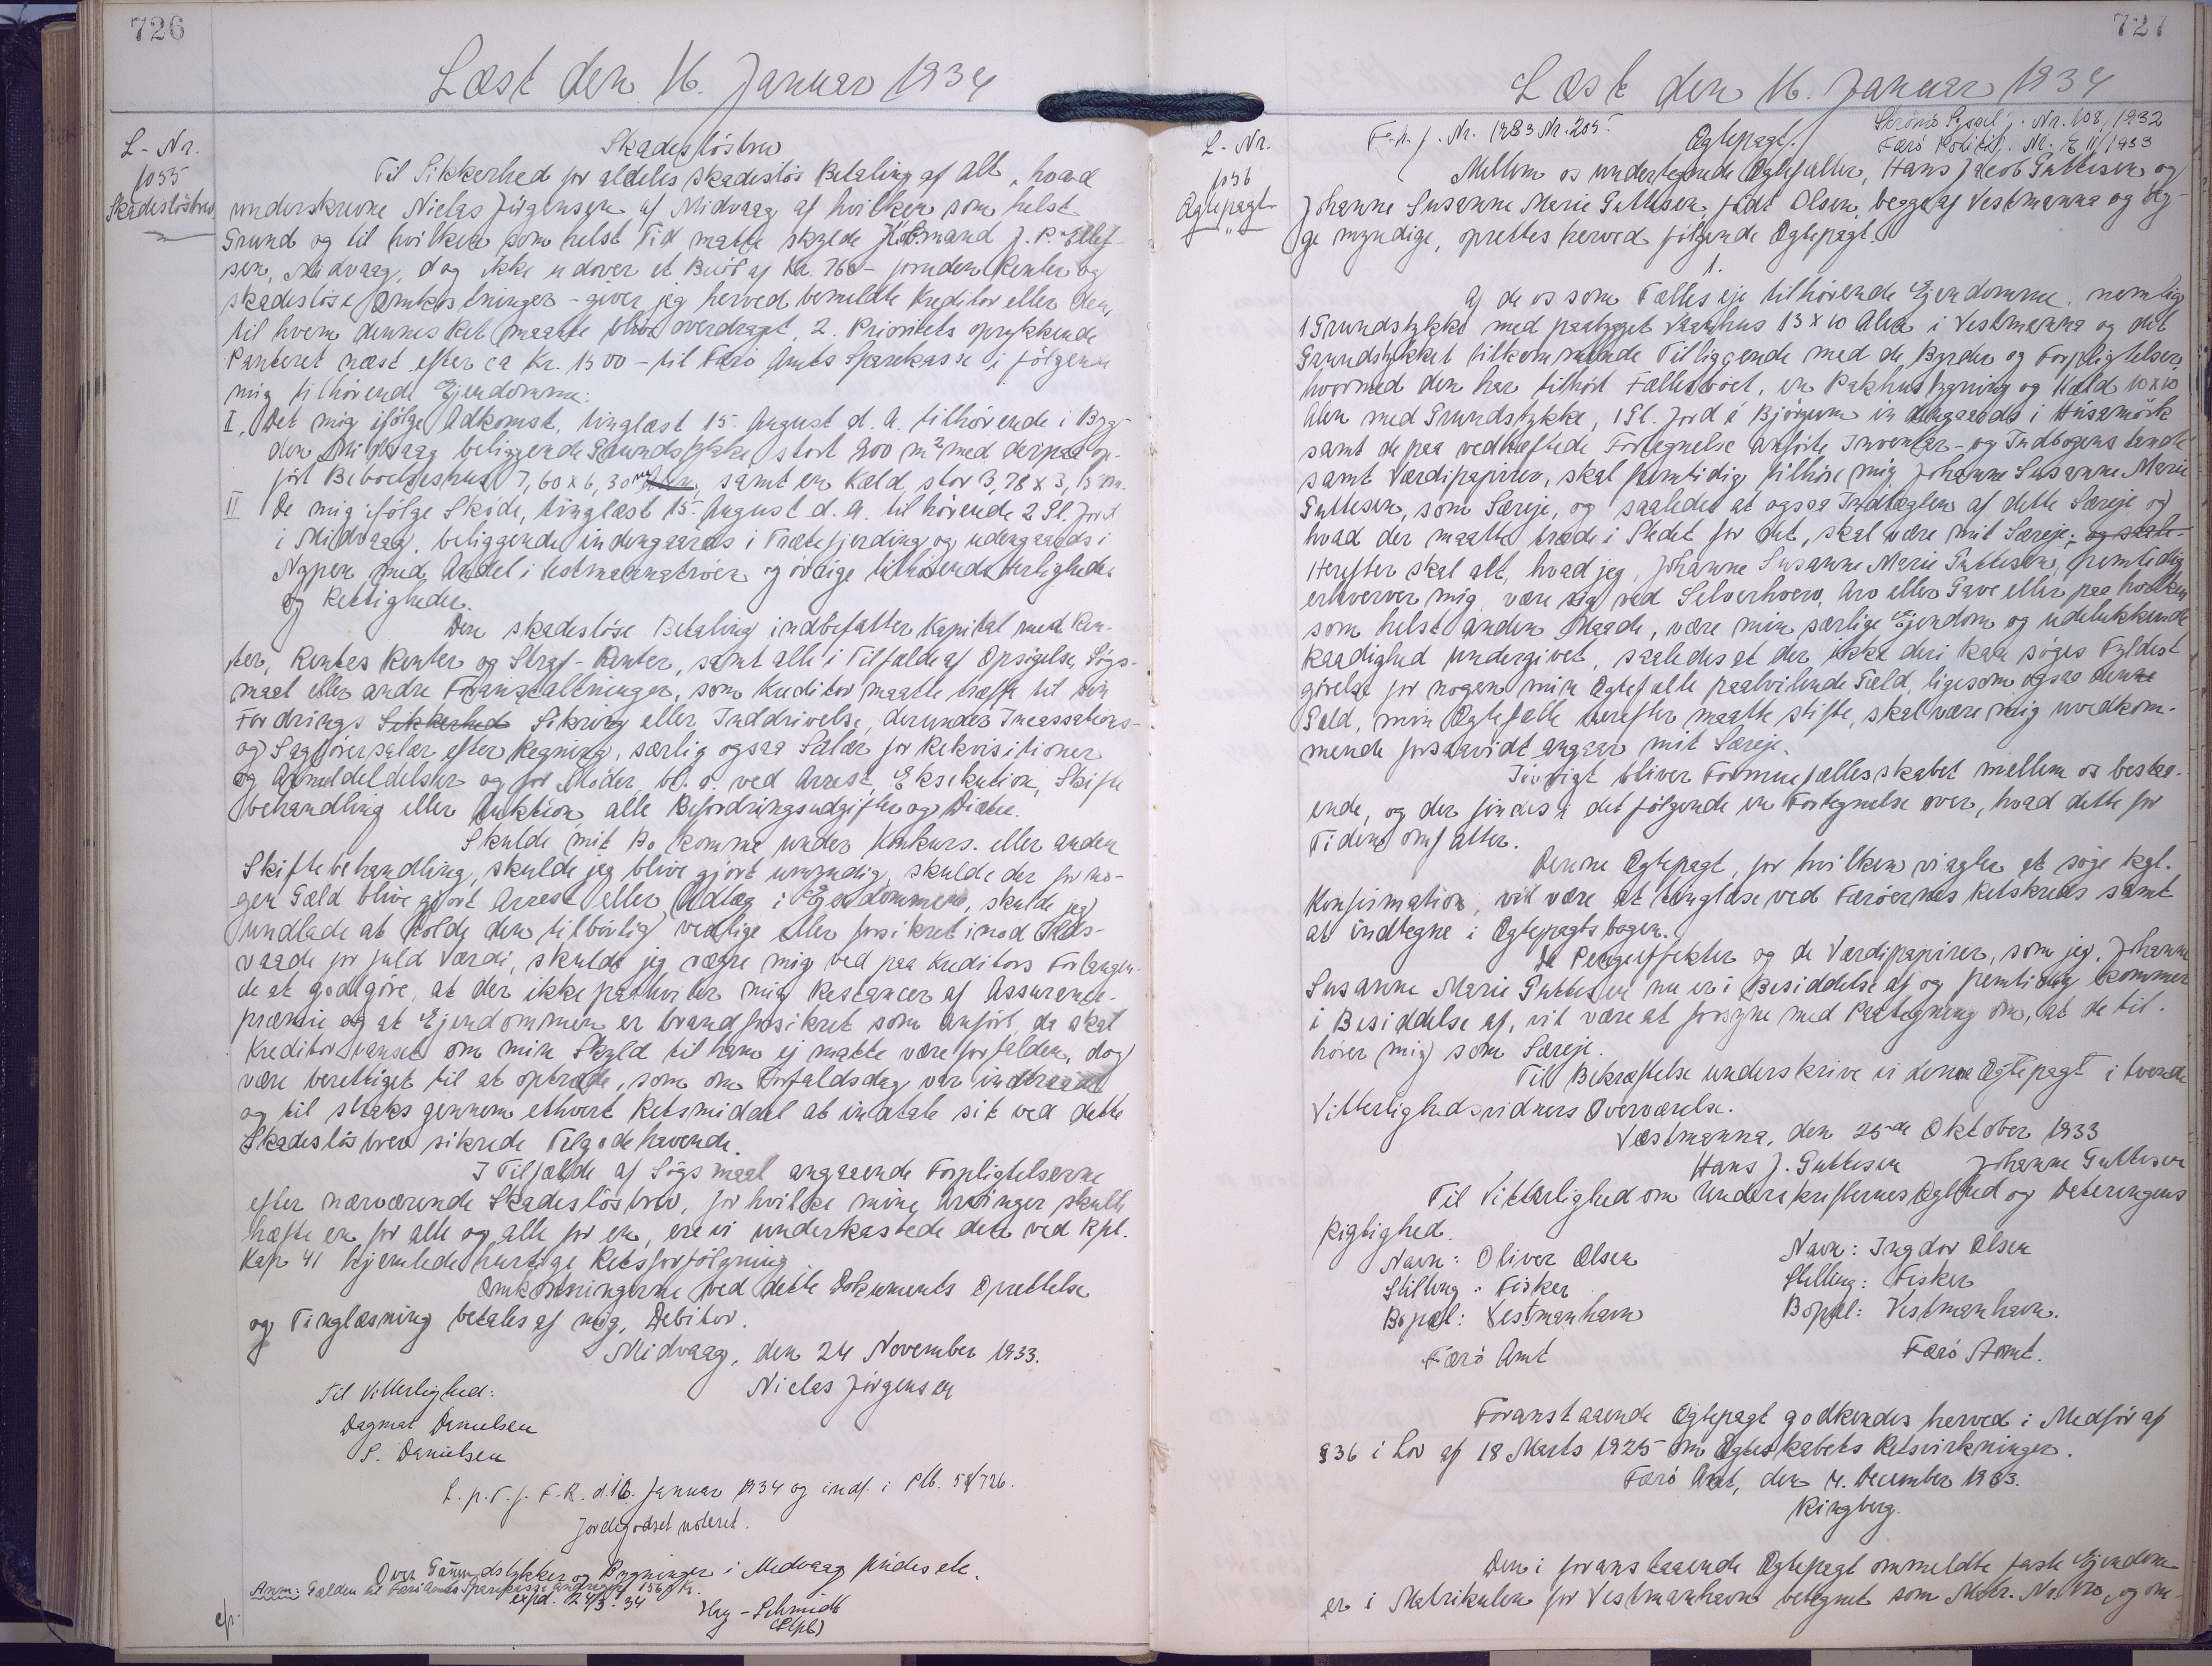 726
Læst den 16. Januar 1934
L-Nr.
1055
Skadeslösbrev
Skadeslösbrev
Til Sikkerhed for aldeles skadeslös Betaling af alt, hvad
underskrevne Niclas Jörgensen af Midvaag af hvilken som helst
Grund og til hvilken som helst Tid matte skylde Köbmand J. P. Ellef-
sen, Midvaag, dog ikke udover et Belöb af Kr. 760 - foruden Renter og
skadeslöse Omkostninger - giver jeg herved bemeldte Kreditor eller den,
til hvem dennes Ret maatte blive overdraget, 2. Prioritets oprykkende
Panteret næst efter ca Kr. 1500 - til Færö Amts Sparekasse i følgende
mig tilhörende Ejendomme:
I. Det mig ifölge Adkomst, tinglæst 15. August d. A. tilhörende i Byg-
den Midvaag beliggende Grundstykke stort 900 m² med derpaa op-
fört Beboelseshus 7,60 x 6,30 m samt en Kæld, stor 3,78 x 3,15 m.
II De mig ifölge Sköde, tinglæst 15. August d. A. tilhörende 2 Gl. Jord
i Midvaag, beliggende indengaards i Trætefjerding og udengaards i
Nypen med Andel i Vestmannatröer og övrige tilhörende Herligheder
og Rettigheder.
Den skadeslöse Betaling indbefatter Kapital med Ren-
ter, Rentes Renter og Straf-Renter, samt alle i Tilfælde af Opsigelse, Sögs-
maal eller andre Foranstaltninger, som Kreditor maatte træffe til sin
Fordrings Sikkerhed Sikring eller Inddrivelse, derunder Incassations-
og Sagförersalær efter Regning, særlig ogsaa Salær for Rekvisitioner
og Anmeldeldelser og for Möder, bl. a. ved Arrest, Eksekution, Skifte
behandling eller Auktion, alle Befordringsudgifter og Diæter.
Skulde mit Bo komme under Konkurs- eller anden
Skiftebehandling, skulde jeg blive gjort umyndig, skulde der for no-
gen Gæld blive gjort Arrest eller Udlæg i Ejendommen, skulde jeg
undlade at holde den tilbörlig vedlige eller forsikret imod Ilds-
vaade for fuld Værdi, skulde jeg vægre mig ved paa Kreditors Forlangen-
de at godtgöre, at der ikke paahviler mig Restancer af Assurance-
præmie og at Ejendommen er brandforsikret som anfört, da skal
Kreditor uanset om min Skyld til ham ej matte være forfalden, dog
være berettiget til at optræde, som om Forfaldsdag var indtraadt
og til straks gennem ethvert Retsmiddel at indtale sit ved dette
Skadeslösbrev sikrede Tilgodehavende.
I Tilfælde af Sögsmaal angaaende Forpligtelserne
efter nærværende Skadeslösbrev, for hvilke mine Arvinger skulle
hæfte en for alle og alle for en, ere vi underkastede den ved Rpl.
Kap 41 hjemlede hurtige Retsforfölgning
Omkostningerne ved dette Dokuments Oprettelse
og Tinglæsning betales af mig, Debitor.
Midvaag, den 24 November 1933.
Niclas Jörgensen
Til Vitterlighed:
Dagmar Danielsen
S. Danielsen
L. p. T. f. F. R. d. 16. Januar 1934 og indf. i Plb. 58/726.
Jordegodset noteret.
Over Grundstykker og Bygninger i Medvaag findes etc.
Anm: Gælden til Færö Amts Sparekasse andrager 1569 Kr.
expd. 24/3. 34
Hey-Schmidt
(Stpl)
727
Læst den 16. Januar 1934
L-Nr.
1056
Ægtepagt
F. n. J. Nr. 1983 Nr. 205.
Ægtepagt.
Strömö Syssel j. Nr. 108/1932
Færö Politi j. Nr. E 11/1933
Mellem os undertegnede Ægtefæller, Hans Jacob Guttesen og
Johanne Susanne Marie Guttesen, født Olsen, begge af Vestmanna og beg-
ge myndige, oprettes herved fölgende Ægtepagt.
1.
Af de os som Fælleseje tilhörende Ejendomme, nemlig
1 Grundstykke med paabygget Vaanhus 13 x 10 Alen i Vestmanna og det
Grundstykket tilkommende Tilliggende med de Byrder og Forpligtelser,
hvormed den har tilhört Fællesboet, en Pakhusbygning og Kæld 10 x 10
Alen med Grundstykke, 1 Gl. Jord á Björgum indengaards i Húsamörk
samt de paa vedhæftede Fortegnelse anförte Inventar- og Indbogenstande
samt Værdipapirer, skal fremtidig tilhöre mig Johanne Susanne Marie
Guttesen, som Særeje, og saaledes at ogsaa Indtægten af dette Særeje og
hvad der maatte træde i Stedet for det, skal være mit Særeje; og saale-
Herefter skal alt, hvad jeg, Johanne Susanne Marie Guttesen, fremtidig
erhverver mig, være sig ved Selverhverv, Arv eller Gave eller paa hvilken
som helst anden Maade, være min særlige Ejendom og udelukkende
Raadighed undergivet, saaledes at der ikke deri kan söges Fyldest
görelse for nogen min Ægtefælle paahvilende Gæld, ligesom ogsaa denne
Gæld, min Ægtefælle herefter maatte stifte, skal være mig uvedkom-
mende forsaavidt angaar mit Særeje.
Iövrigt bliver Formuefællesskabet mellem os bestaa-
ende, og der findes i det fölgende en Fortegnelse over, hvad dette for
Tiden omfatter.
Denne Ægtepagt, for hvilken vi agter at söge kgl.
Konfirmation, vil være at tinglæse ved Færöernes Retskreds samt
at indtegne i Ægtepagtsbogen.
De Pengeeffekter og de Værdipapirer, som jeg, Johanne
Susanne Marie Guttesen nu er i Besiddelse af og fremtidig kommer
i Besiddelse af, vil være at forsyne med Paategning om, at de til-
hörer mig som Særeje.
Til Bekræftelse underskrive vi denne Ægtepagt i tvende
Vitterlighedsvidners Overværelse.
Vestmanna, den 25de Oktober 1933
Hans J. Guttesen Johanne Guttesen
Til Vitterlighed om Underskrifternes Ægthed og Dateringens
Rigtighed.
Navn: Oliver Olsen Navn: Ingdor Olsen
Stilling: Fisker Stilling: Fisker
Bopæl: Vestmanhavn Bopæl: Vestmanhavn.
Færö Amt Færö Amt.
Foranstaaende Ægtepagt godkendes herved i Medför af
§ 36 i Lov af 18 Marts 1925 om Ægteskabets Retsvirkninger.
Færö Amt, den 4. December 1933.
Ringberg.
Den i foranstaaende Ægtepagt ommeldte faste Ejendom
er i Matrikulen for Vestmanhavn betegnet som Matr. Nr. og om-